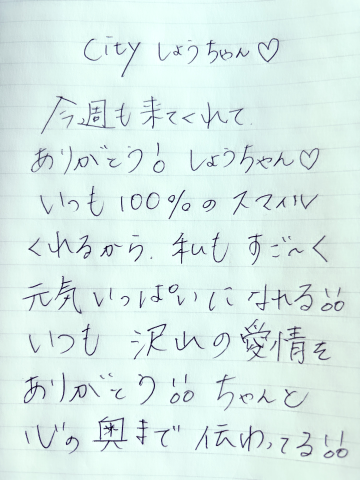 City しょうちゃん♡
今週も来てくれて
ありがとう! しょうちゃん♡
いつも100%のスマイル
くれるから、私もすご〜く
元気いっぱいになれる!!
いつも 沢山の愛情を
ありがとう!! ちゃんと
心の奥まで伝わってる!!